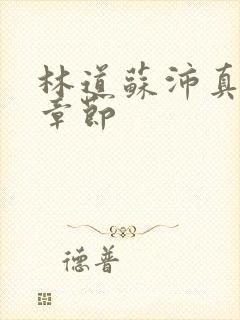 林道蘇沛真
章節
德普